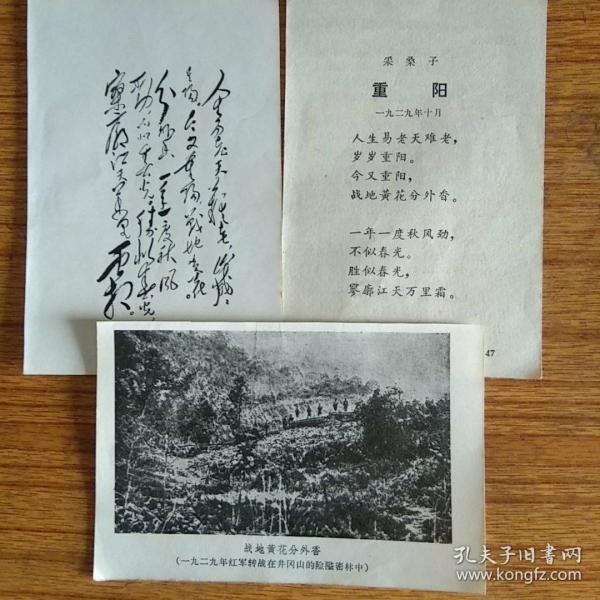 人生易老天难老，岁岁
重阳。今又重阳，战地黄花
分外香。一年一度秋风
劲，不似春光。胜似春光，
寥廓江天万里霜。
采桑子
重 阳
一九二九年十月
人生易老天难老，
岁岁重阳。
今又重阳，
战地黄花分外香。
一年一度秋风劲，
不似春光。
胜似春光，
寥廓江天万里霜。
47
战地黄花分外香
（一九二九年红军转战在井冈山的险隘密林中）
孔夫子旧书网
www.kongfz.com